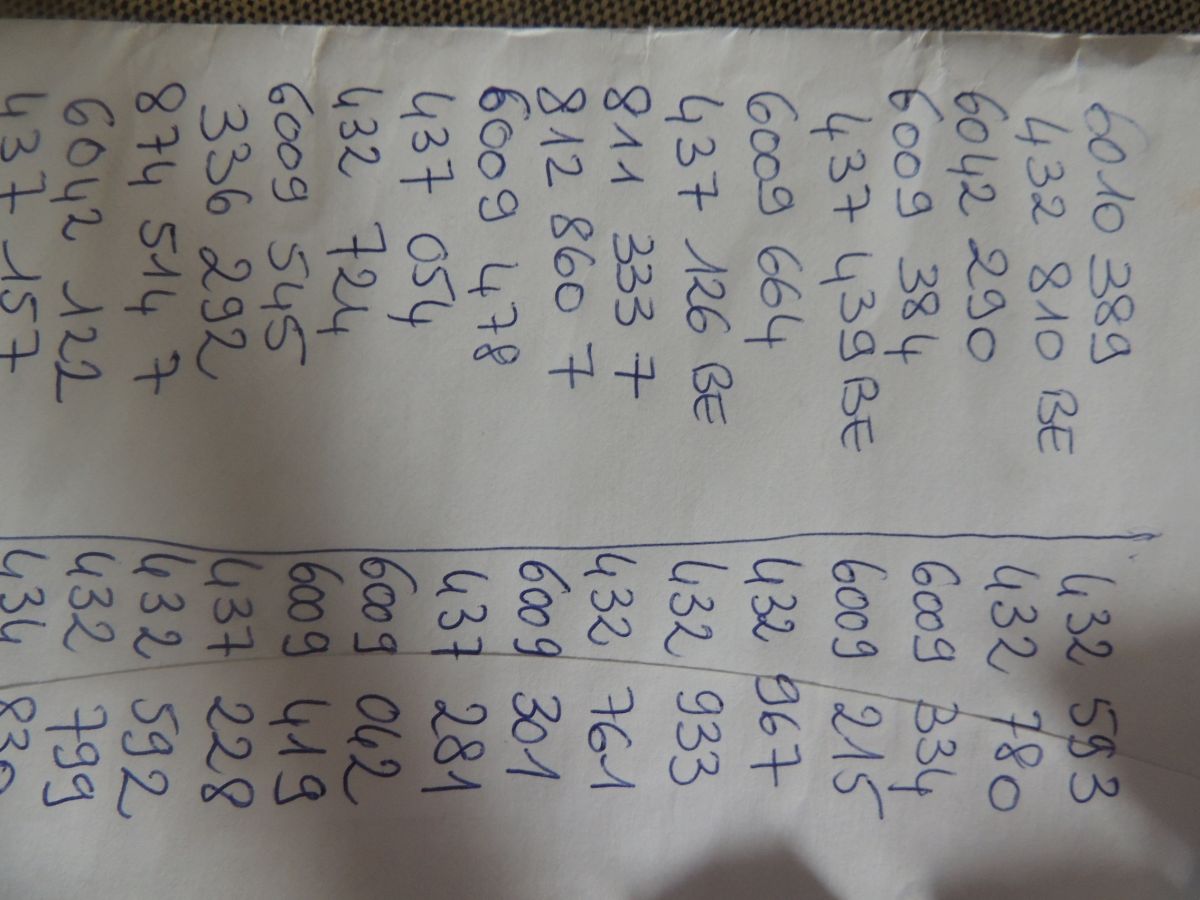 6010 389
432 810 BE
6042 290
6009 384
437 439 BE
6009 664
437 126 BE
811 333 7
812 860 7
6009 478
437 054
432 724
6009 545
336 292
874 514 7
6042 122
437 157
432 593
432 780
6009 334
6009 215
432 967
432 933
432 761
6009 301
437 281
6009 042
6009 419
437 228
432 592
432 799
434